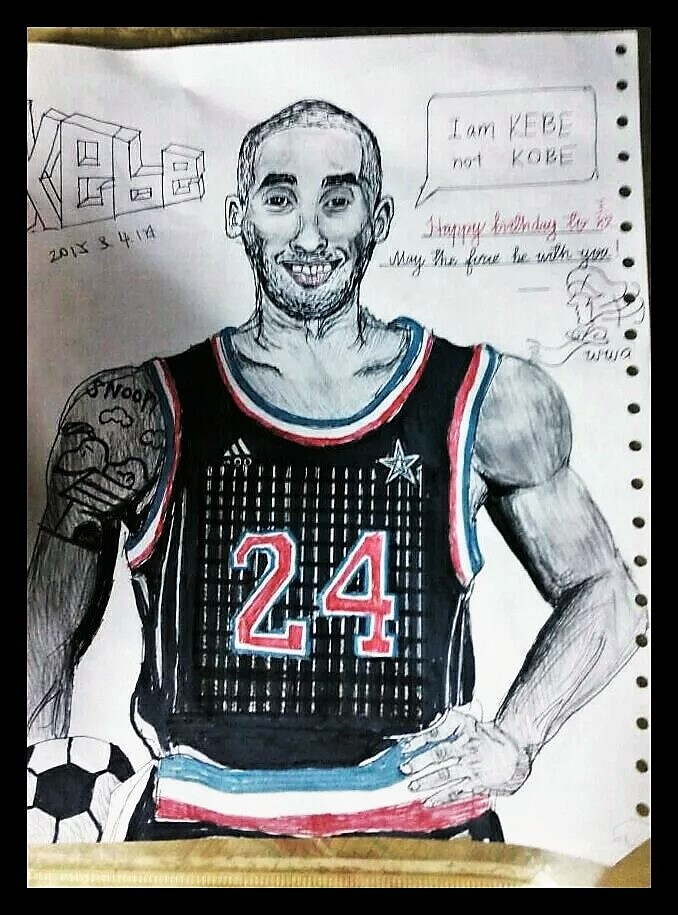 KEBE
I am KEBE
not KOBE
Happy birthday to
May the force be with you!
wwa
SNOOP
24